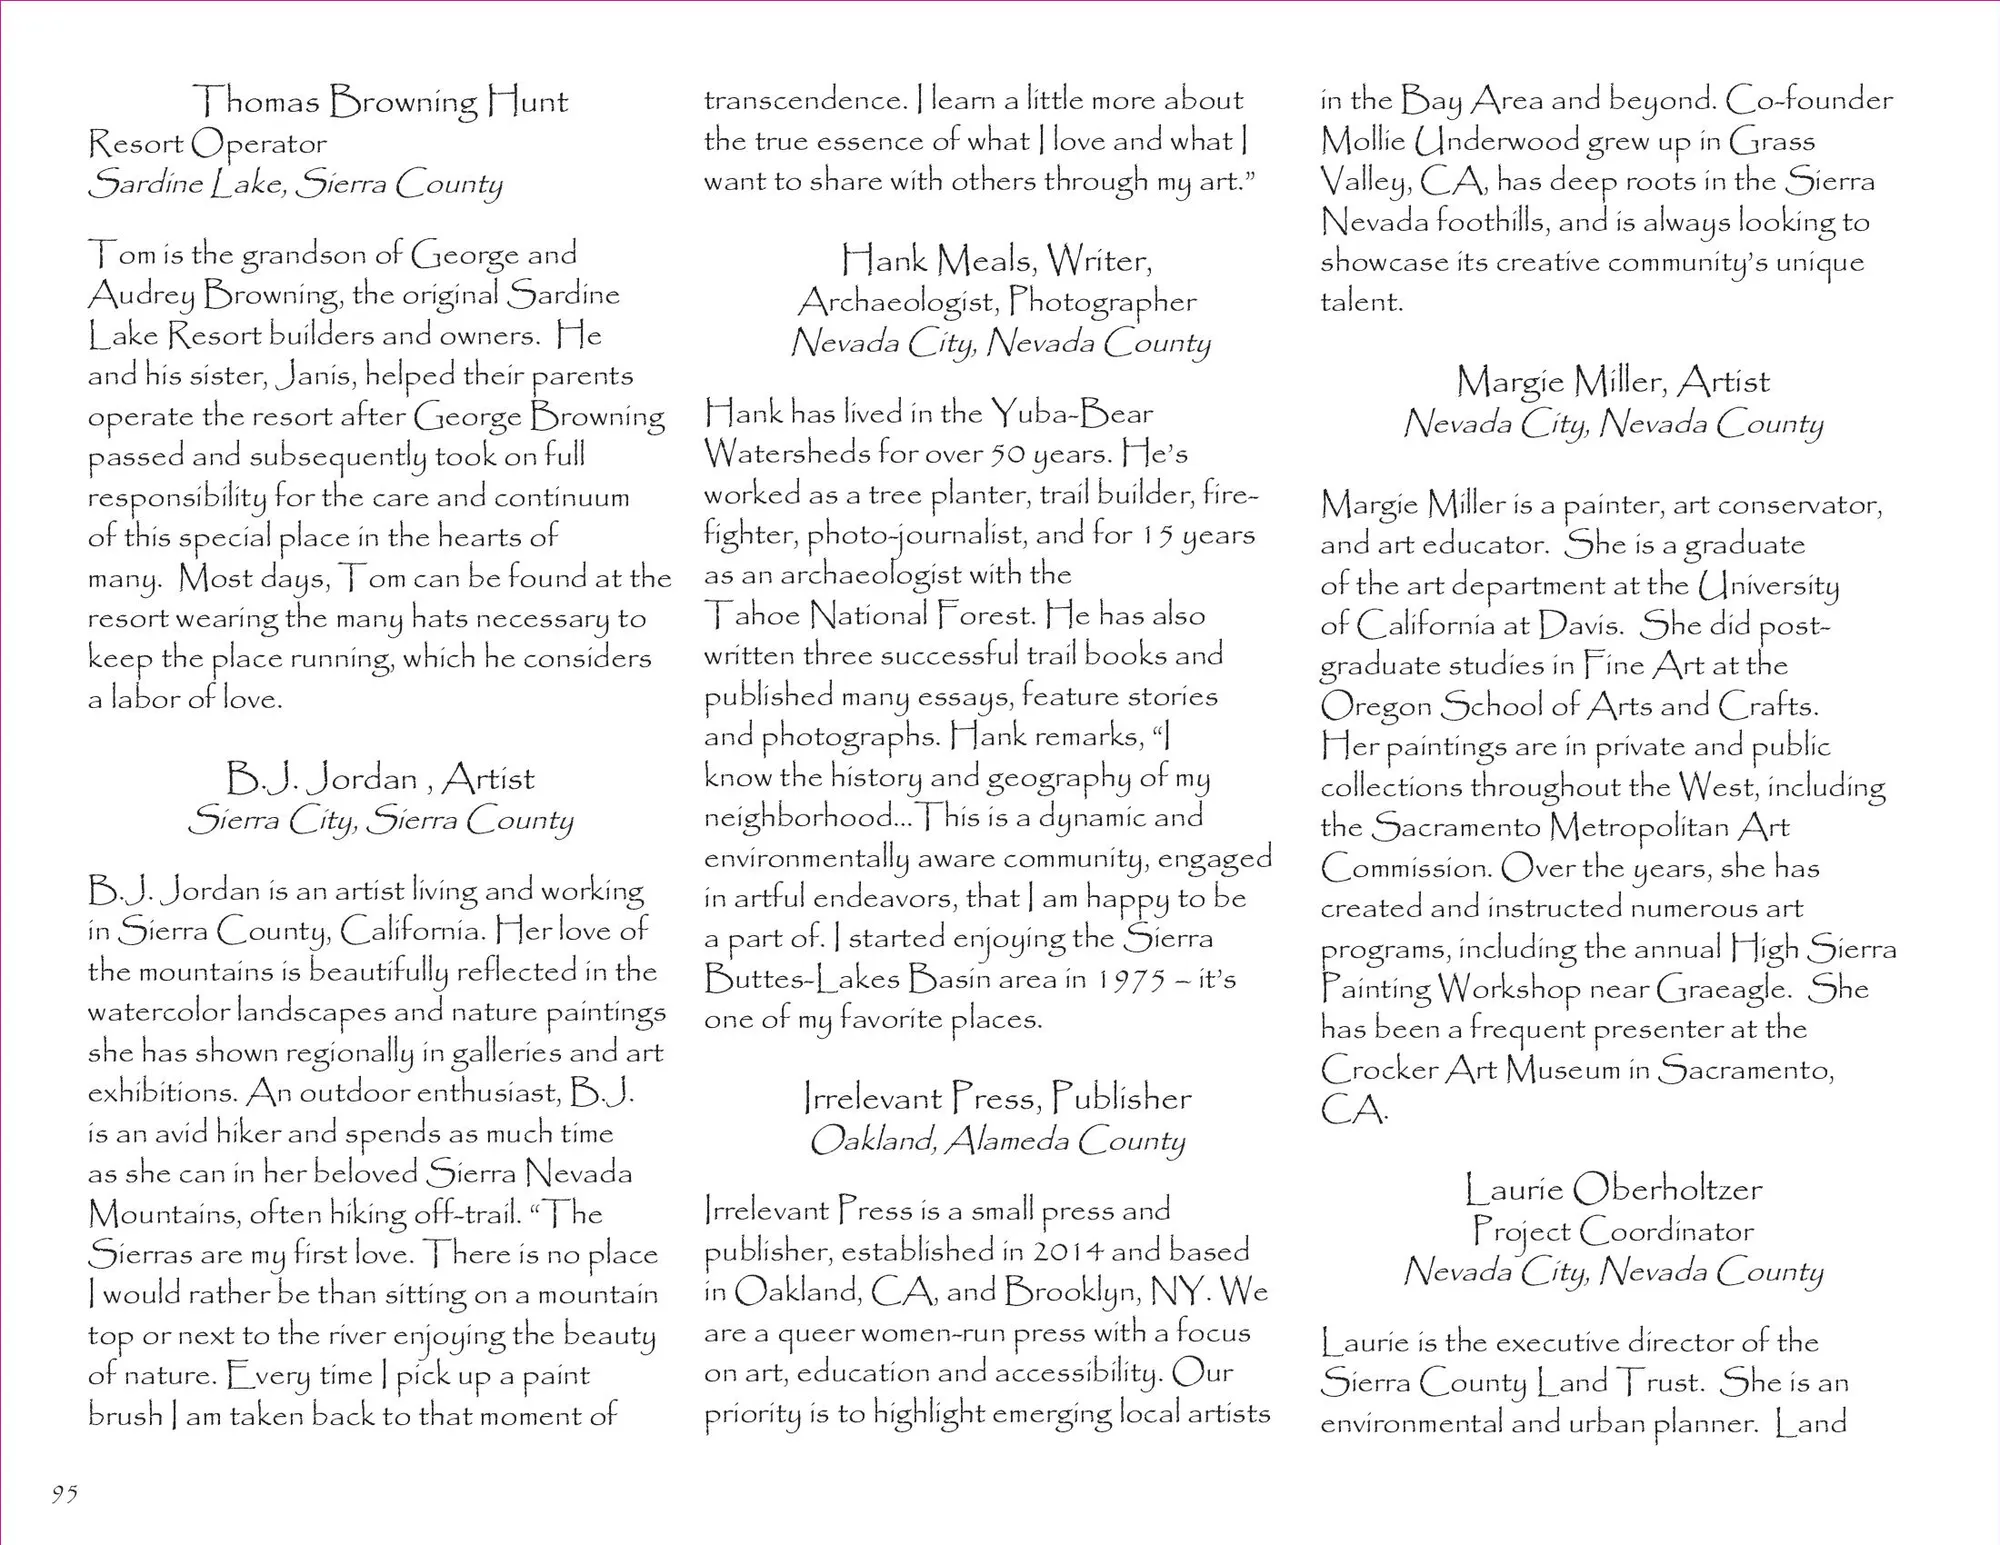 Thomas Browning Hunt
Resort Operator
Sardine Lake, Sierra County
Tom is the grandson of George and
Audrey Browning, the original Sardine
Lake Resort builders and owners.  He
and his sister, Janis, helped their parents
operate the resort after George Browning
passed and subsequently took on full
responsibility for the care and continuum
of this special place in the hearts of
many.  Most days, Tom can be found at the
resort wearing the many hats necessary to
keep the place running, which he considers
a labor of love.
B.J. Jordan , Artist
Sierra City, Sierra County
B.J. Jordan is an artist living and working
in Sierra County, California. Her love of
the mountains is beautifully reflected in the
watercolor landscapes and nature paintings
she has shown regionally in galleries and art
exhibitions. An outdoor enthusiast, B.J.
is an avid hiker and spends as much time
as she can in her beloved Sierra Nevada
Mountains, often hiking off-trail. “The
Sierras are my first love. There is no place
I would rather be than sitting on a mountain
top or next to the river enjoying the beauty
of nature. Every time I pick up a paint
brush I am taken back to that moment of
transcendence. I learn a little more about
the true essence of what I love and what I
want to share with others through my art.”
Hank Meals, Writer,
Archaeologist, Photographer
Nevada City, Nevada County
Hank has lived in the Yuba-Bear
Watersheds for over 50 years. He’s
worked as a tree planter, trail builder, fire-
fighter, photo-journalist, and for 15 years
as an archaeologist with the
Tahoe National Forest. He has also
written three successful trail books and
published many essays, feature stories
and photographs. Hank remarks, “I
know the history and geography of my
neighborhood...This is a dynamic and
environmentally aware community, engaged
in artful endeavors, that I am happy to be
a part of. I started enjoying the Sierra
Buttes-Lakes Basin area in 1975 – it’s
one of my favorite places.
Irrelevant Press, Publisher
Oakland, Alameda County
Irrelevant Press is a small press and
publisher, established in 2014 and based
in Oakland, CA, and Brooklyn, NY. We
are a queer women-run press with a focus
on art, education and accessibility. Our
priority is to highlight emerging local artists
in the Bay Area and beyond. Co-founder
Mollie Underwood grew up in Grass
Valley, CA, has deep roots in the Sierra
Nevada foothills, and is always looking to
showcase its creative community’s unique
talent.
Margie Miller, Artist
Nevada City, Nevada County
Margie Miller is a painter, art conservator,
and art educator.  She is a graduate
of the art department at the University
of California at Davis.  She did post-
graduate studies in Fine Art at the
Oregon School of Arts and Crafts.
Her paintings are in private and public
collections throughout the West, including
the Sacramento Metropolitan Art
Commission. Over the years, she has
created and instructed numerous art
programs, including the annual High Sierra
Painting Workshop near Graeagle.  She
has been a frequent presenter at the
Crocker Art Museum in Sacramento,
CA.
Laurie Oberholtzer
Project Coordinator
Nevada City, Nevada County
Laurie is the executive director of the
Sierra County Land Trust.  She is an
environmental and urban planner.  Land
95